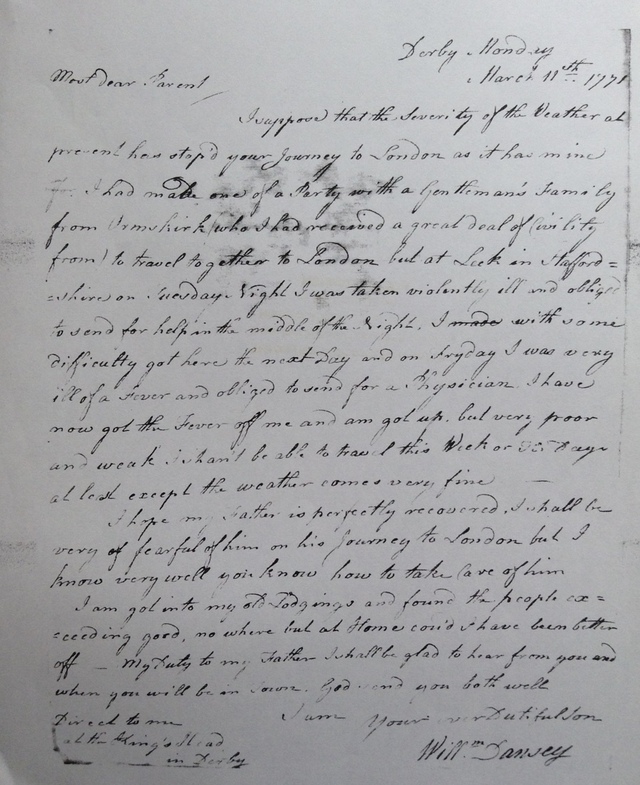 Derby Monday
March 11th 1771
Most dear Parent
I suppose that the Severity of the Weather at
present has stop'd your Journey to London as it has mine
for I had made one of a Party with a Gentleman's Family
from Ormskirk (who I had received a great deal of Civility
from) to travel together to London but at Leek in Stafford=
=shire on Tuesday Night I was taken violently ill and oblig'd
to send for help in the middle of the Night, I made with some
difficulty got here the next Day and on Fryday I was very
ill of a Fever and obliged to send for a Physician. I have
now got the Fever off me and am got up. but very poor
and weak I shan't be able to travel this Week or Days
at least except the weather comes very fine —
I hope my Father is perfectly recovered. I shall be
very of fearful of him on his Journey to London but I
know very well you know how to take Care of him
I am got into my old Lodgings and found the people ex=
=ceeding good, no where but at Home cou'd I have been better
off — My Duty to my Father I shall be glad to hear from you and
when you will be in Town. God send you both well
Direct to me I am Your ever Dutiful son
at the King's Head
in Derby Willm Dansey